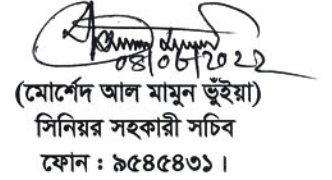 08/08/2022
(মোর্শেদ আল মামুন ভূঁইয়া)
সিনিয়র সহকারী সচিব
ফোন : ৯৫৪৫৪৩১।